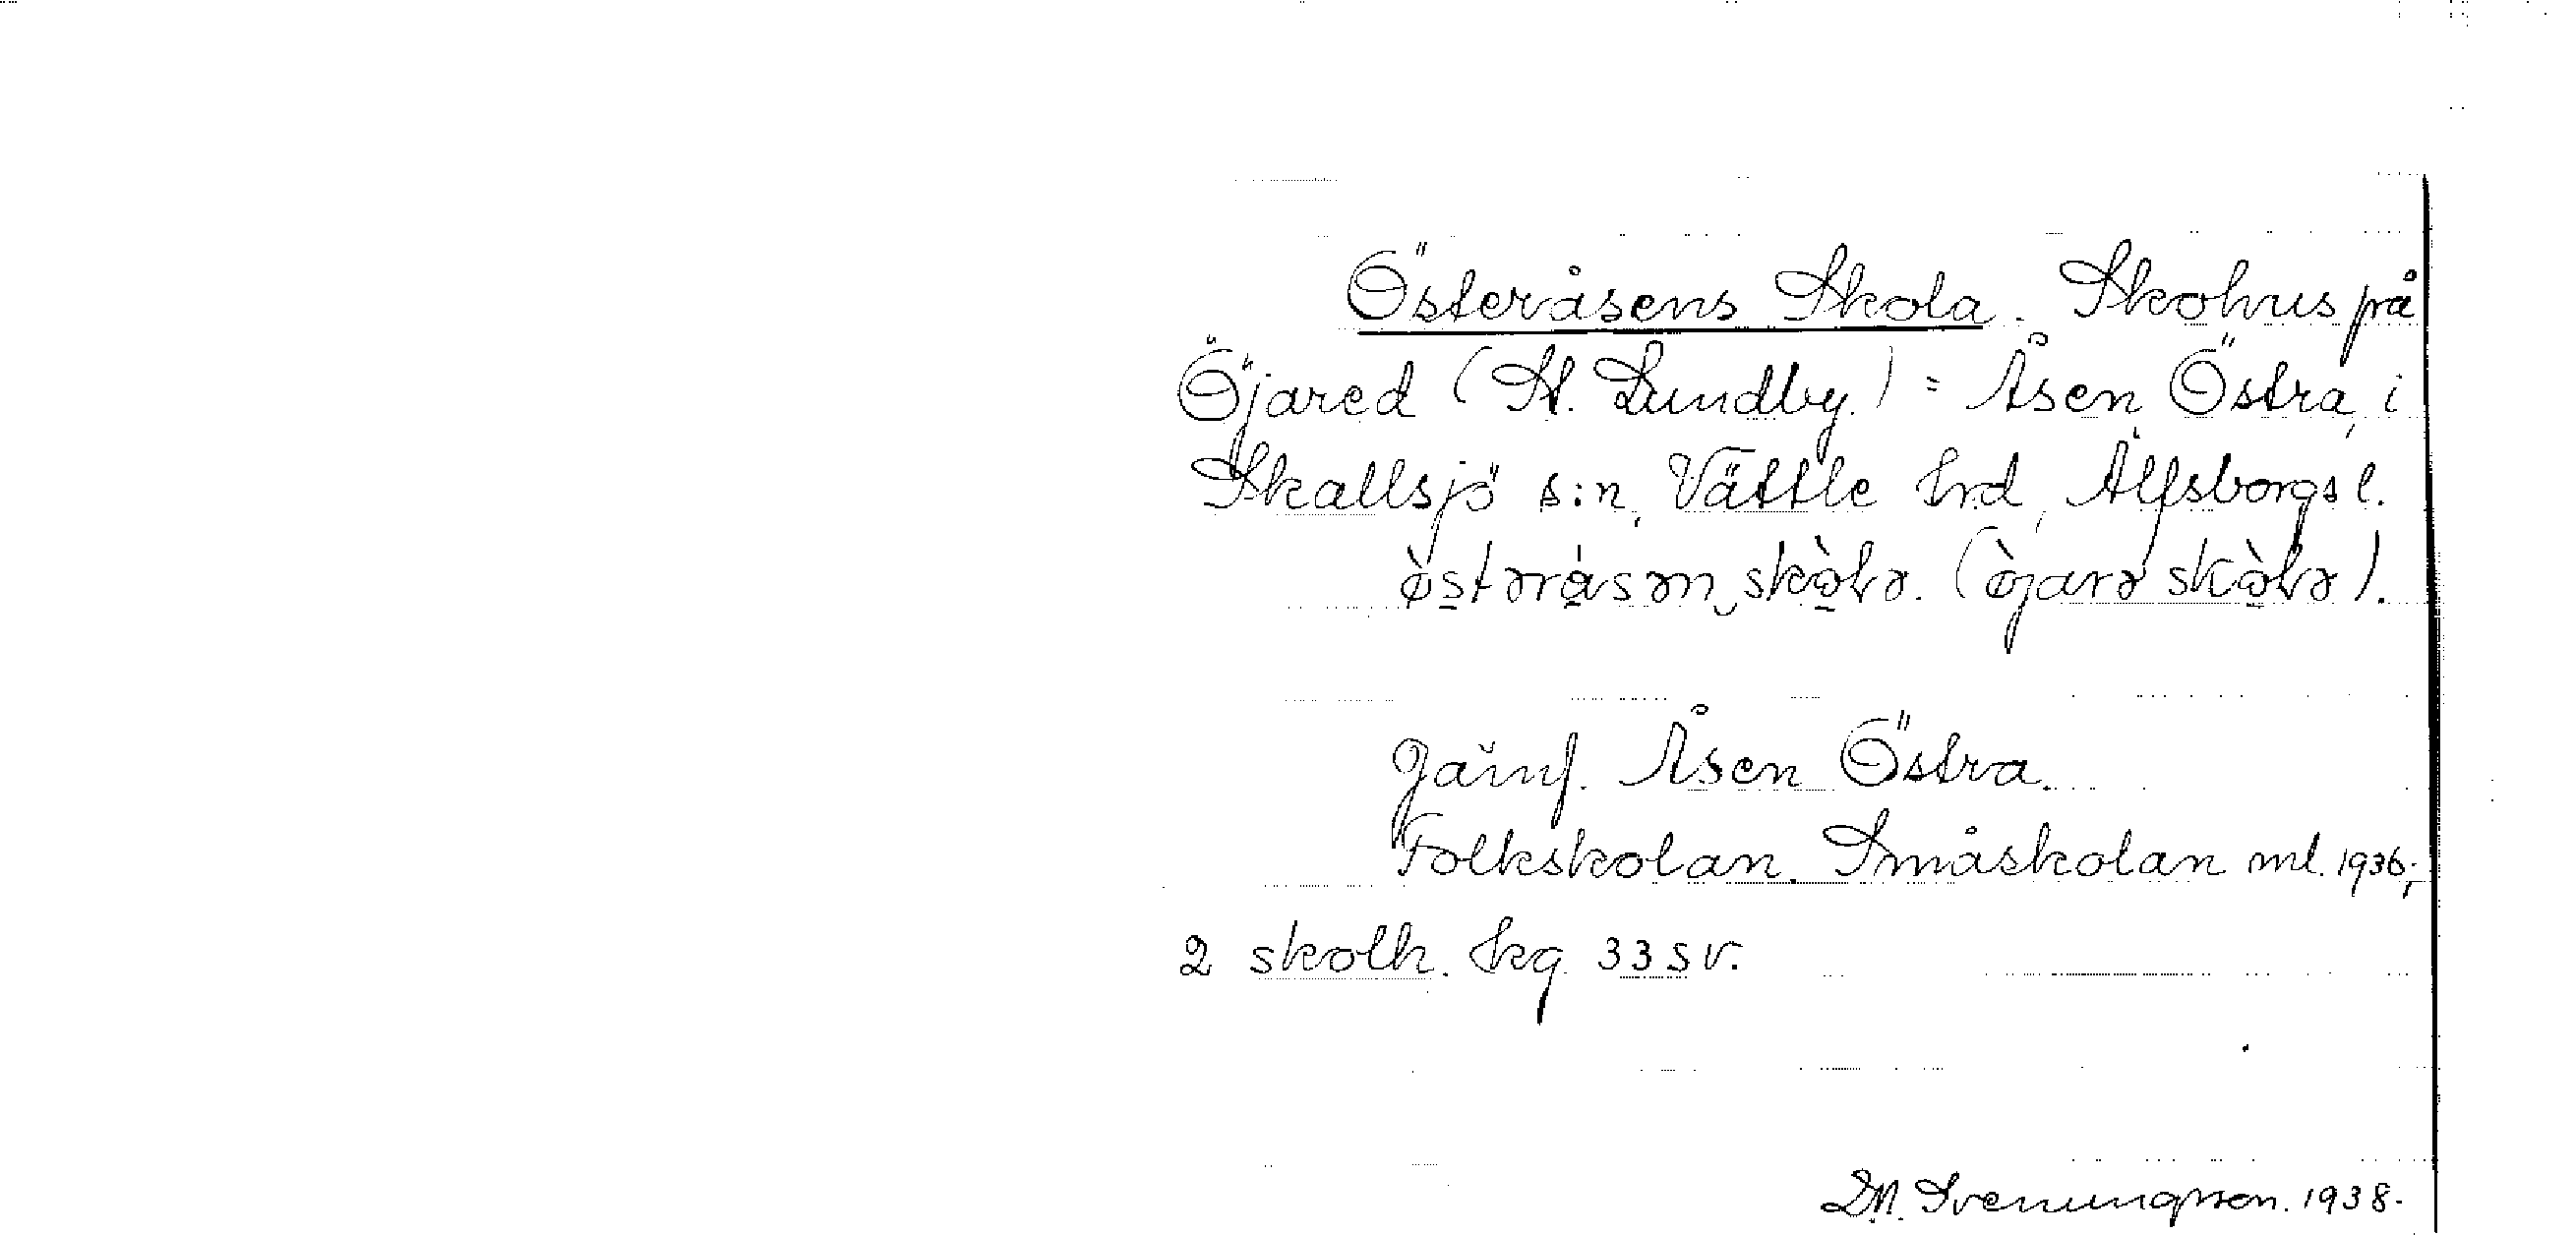 Österåsens Skola. Skohus på
Öjared (St. Lundby.) = Åsen Östra, i
Skallsjö s:n, Vättle hrd, Älfsborgs l.
östəråsən skòlə. (òjarə skòlə).
Jämf. Åsen Östra.
Folkskolan. Småskolan ml. 1936;
2 skolh. kg 33 SV.
D.N. Svenungsson. 1938.